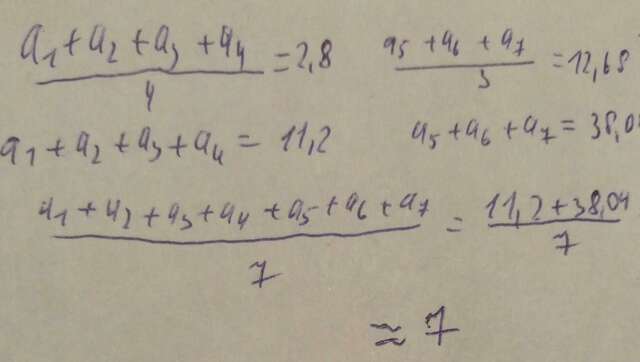 (a1 + a2 + a3 + a4)/4 = 2,8
(a5 + a6 + a7)/3 = 12,68
a1 + a2 + a3 + a4 = 11,2
a5 + a6 + a7 = 38,0
(a1 + a2 + a3 + a4 + a5 + a6 + a7)/7 = (11,2 + 38,04)/7
≈ 7